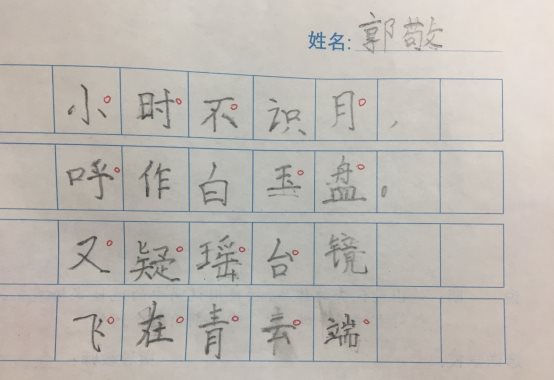 姓名:郭敬
小时不识月，
呼作白玉盘。
又疑瑶台镜
飞在青云端